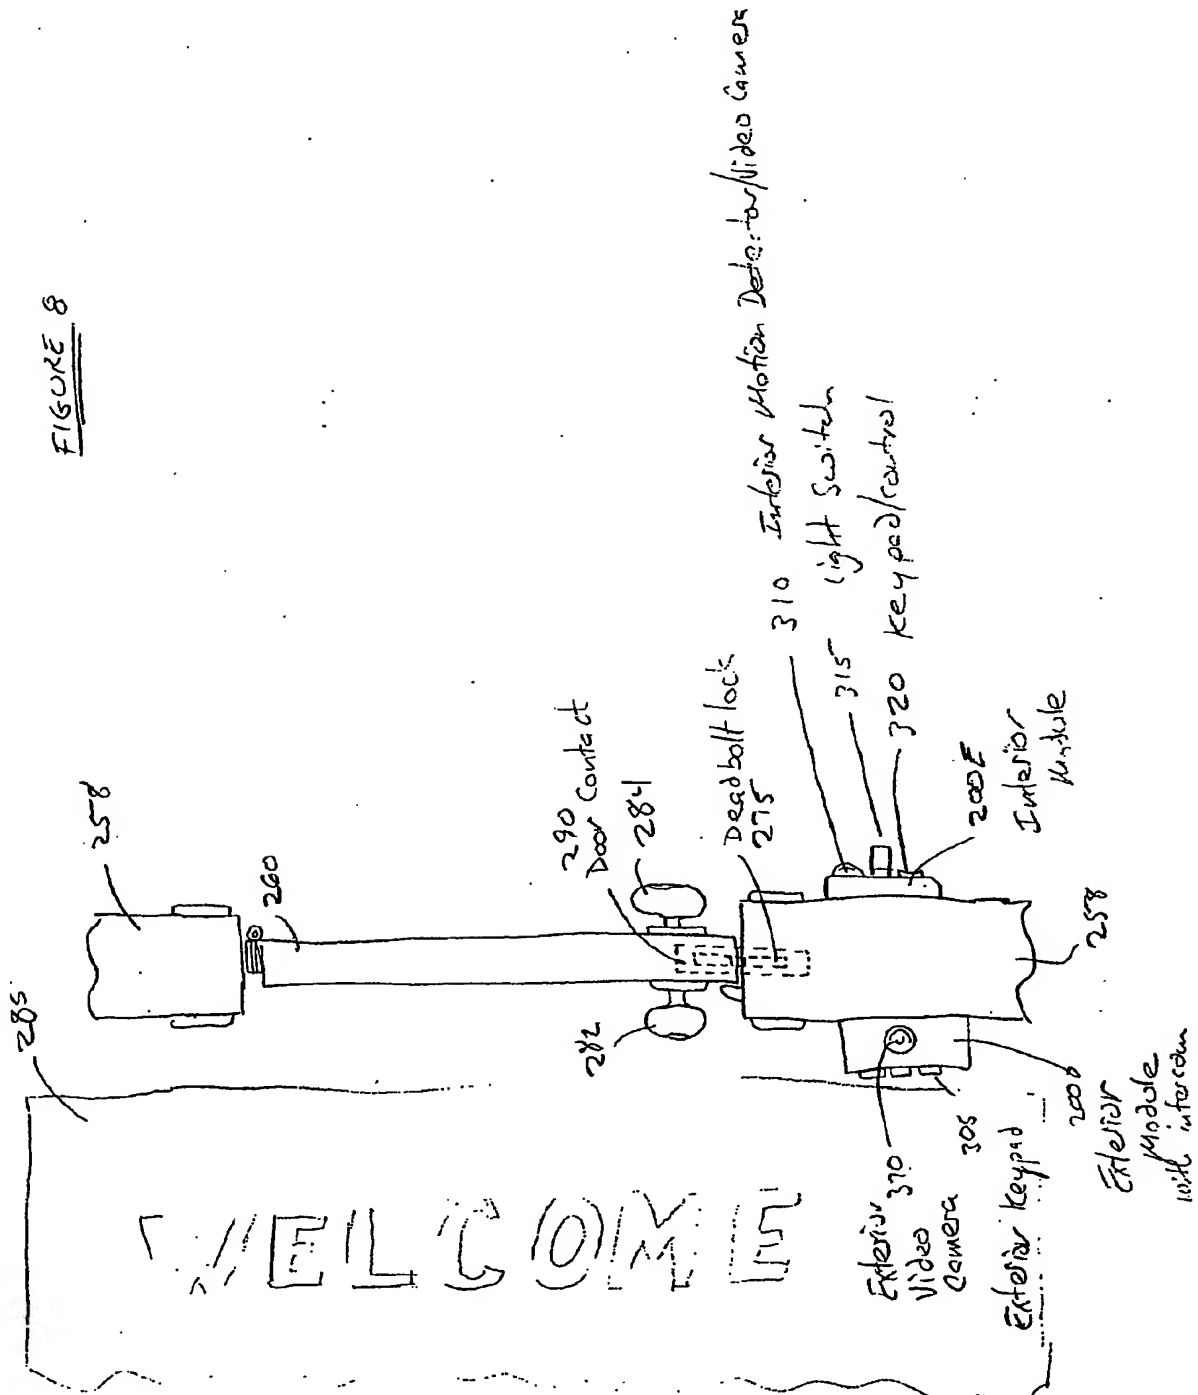 FIGURE 8
285
258
260
290
Door Contact
282
284
Deadbolt lock
275
310 Interior Motion Detector/Video Camera
315 Light Switch
320 Keypad/control
200E
Interior
Module
258
WELCOME
370
Exterior
Video
Camera
305
Exterior Keypad
200D
Exterior
Module
with intercom